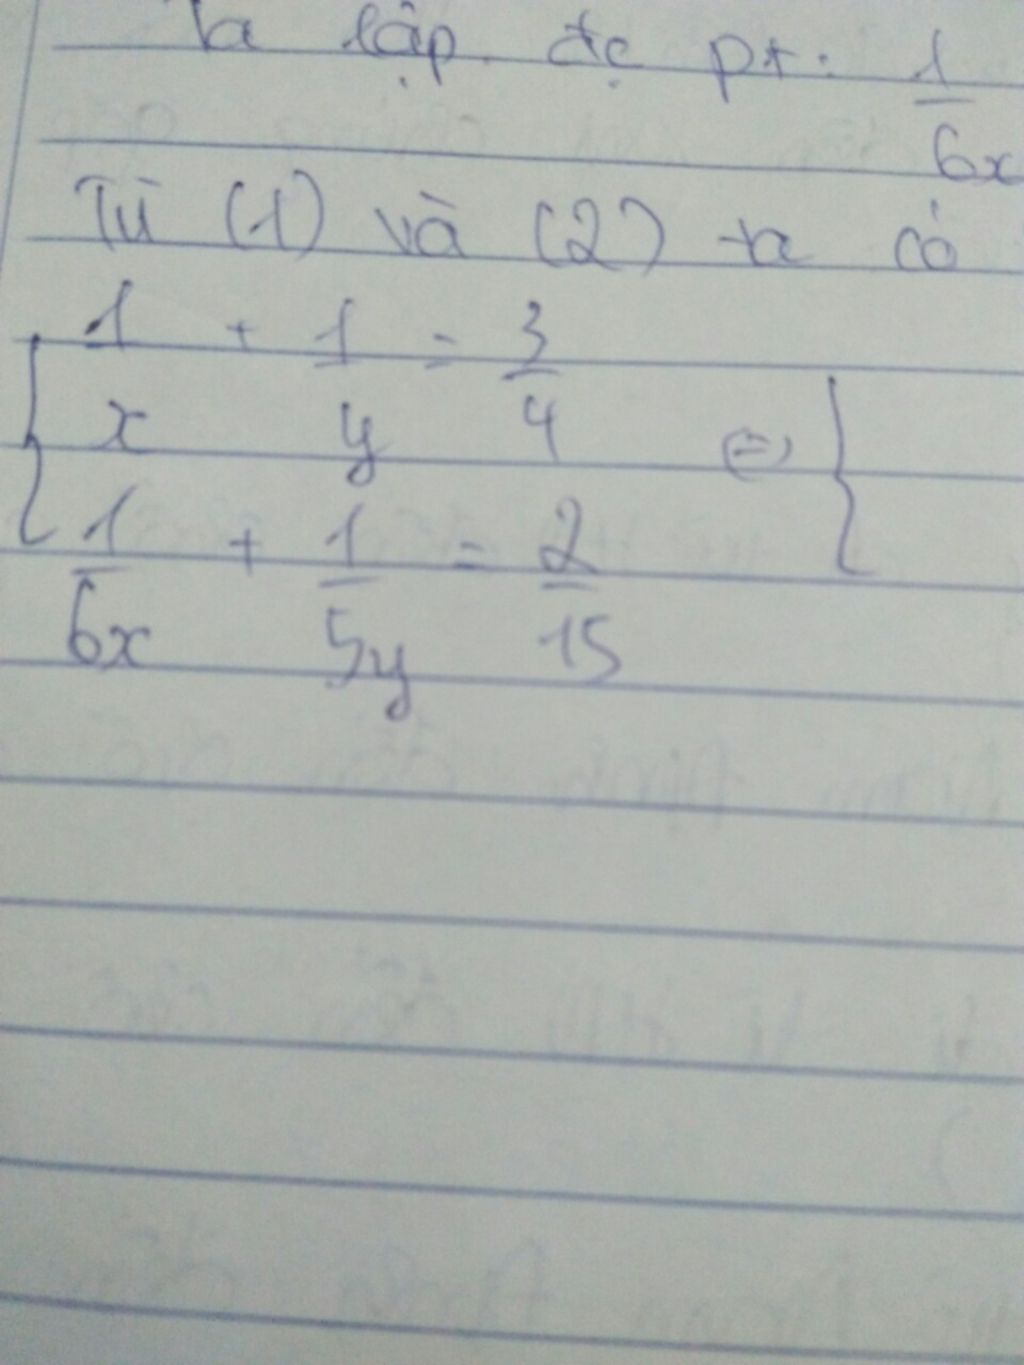 Ta lập đc pt: 1/6x
Từ (1) và (2) ta có
{ 1/x + 1/y = 3/4 ⇔ {
1/6x + 1/5y = 2/15